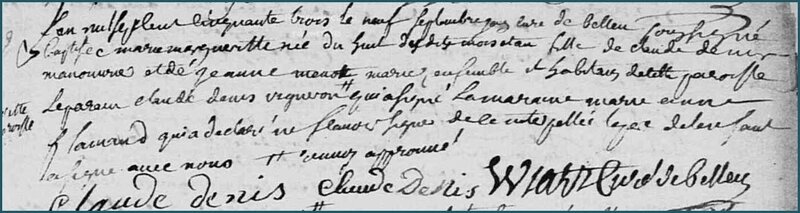 L'an mil sept cent cinquante trois le neuf septembre par curé de belleu soussigné
baptisée marie margueritte née du huit desdits mois et an fille de claude denis
manouvrier et de jeanne menott mariez ensemble et habitans de cette paroisse
Le parain claude denis vigneron # qui a signé La maraine marie anne
flamand qui a declaré ne scavoir signer de ce interpellée le pere de lenfant
a signé avec nous # approuvé
claude denis claude denis Wiart Curé de belleu